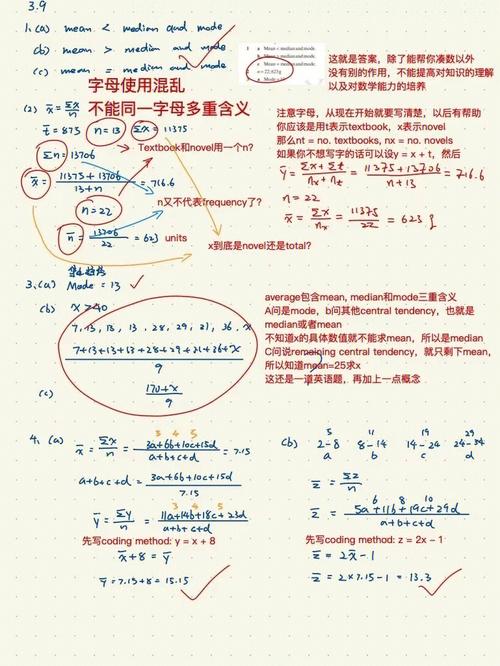 3.9
1.(a) mean < median and mode
(b) mean > median and mode
(c) mean = median and mode
1 a Mean < median and mode.
b Mean > median and mode.
c Mean = median and mode.
2 n = 22; 623 g
这就是答案，除了能帮你凑数以外
没有别的作用，不能提高对知识的理解
以及对数学能力的培养
字母使用混乱
不能同一字母多重含义
(2) x̄ = Σx/n
t̄ = 875 n = 13 Σx = 11375
Σn = 13706
Textbook和novel用一个n?
x̄ = (11375 + 13706)/(13 + n) = 716.6
n = 22
n又不代表frequency了?
n̄ = 13706/22 = 623 units
x到底是novel还是total?
注意字母，从现在开始就要写清楚，以后有帮助
你应该是用t表示textbook, x表示novel
那么nt = no. textbooks, nx = no. novels
如果你不想写字的话可以设y = x + t, 然后
ȳ = (Σx + Σt)/(nx + nt) = (11375 + 13706)/(n + 13) = 716.6
n = 22
x̄ = Σx/nx = 11375/22 = 623
集中趋势
3.(a) Mode = 13
(b) x > 40
7, 13, 13, 13, 28, 29, 21, 36, x
(7+13+13+13+28+29+21+36+x)/9
(c) (170+x)/9
average包含mean, median和mode三重含义
A问是mode，b问其他central tendency，也就是
median或者mean
不知道x的具体数值就不能求mean，所以是median
C问说remaining central tendency，就只剩下mean，
所以知道mean=25求x
这还是一道英语题，再加上一点概念
4. (a) x̄ = Σx/n = (3a+6b+10c+15d)/(a+b+c+d) = 7.15
3 4 5
a+b+c+d = (3a+6b+10c+15d)/7.15
3 4 5
ȳ = Σy/n = (11a+14b+18c+23d)/(a+b+c+d)
先写coding method: y = x + 8
x̄ + 8 = ȳ
ȳ = 7.15 + 8 = 15.15
(b) 5 11 19 29
2-8 8-14 14-24 24-34
a b c d
z̄ = Σz/n
6 8 10
z̄ = (5a+11b+19c+29d)/(a+b+c+d)
先写coding method: z = 2x - 1
z̄ = 2x̄ - 1
z̄ = 2 × 7.15 - 1 = 13.3